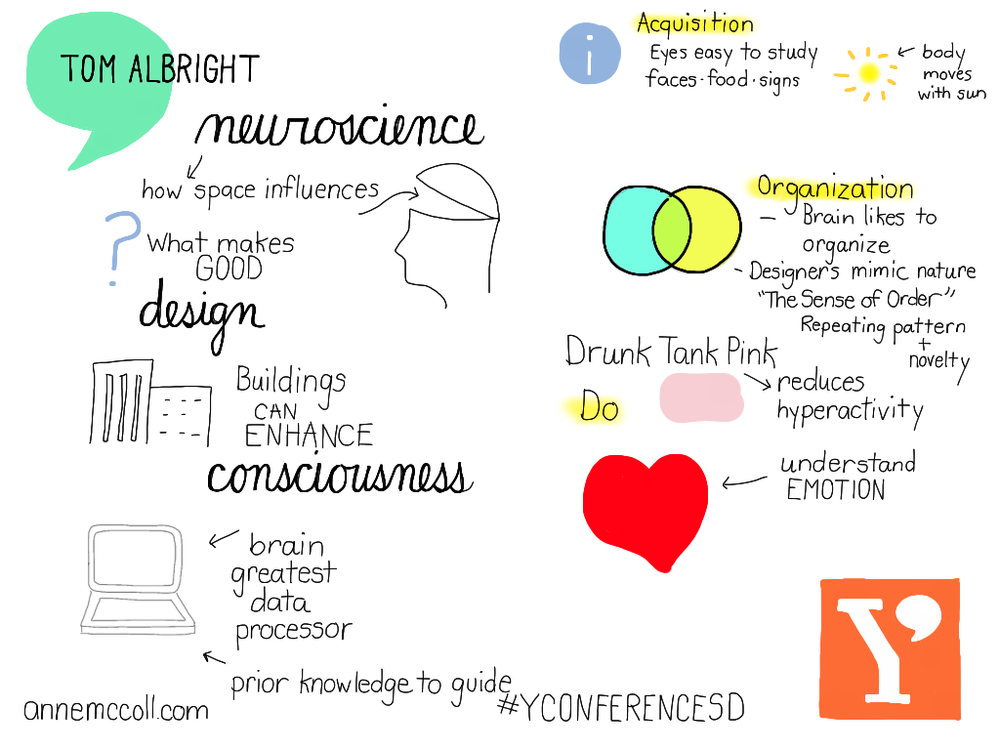 TOM ALBRIGHT
neuroscience
how space influences
?
What makes
GOOD
design
Buildings
CAN
ENHANCE
consciousness
brain
greatest
data
processor
prior knowledge to guide
annemccoll.com
#YCONFERENCESD
i
Acquisition
Eyes easy to study
faces·food·signs
body
moves
with sun
Organization
- Brain likes to
organize
- Designers mimic nature
"The Sense of Order"
Repeating pattern
+
novelty
Drunk Tank Pink
Do
reduces
hyperactivity
understand
EMOTION
Y